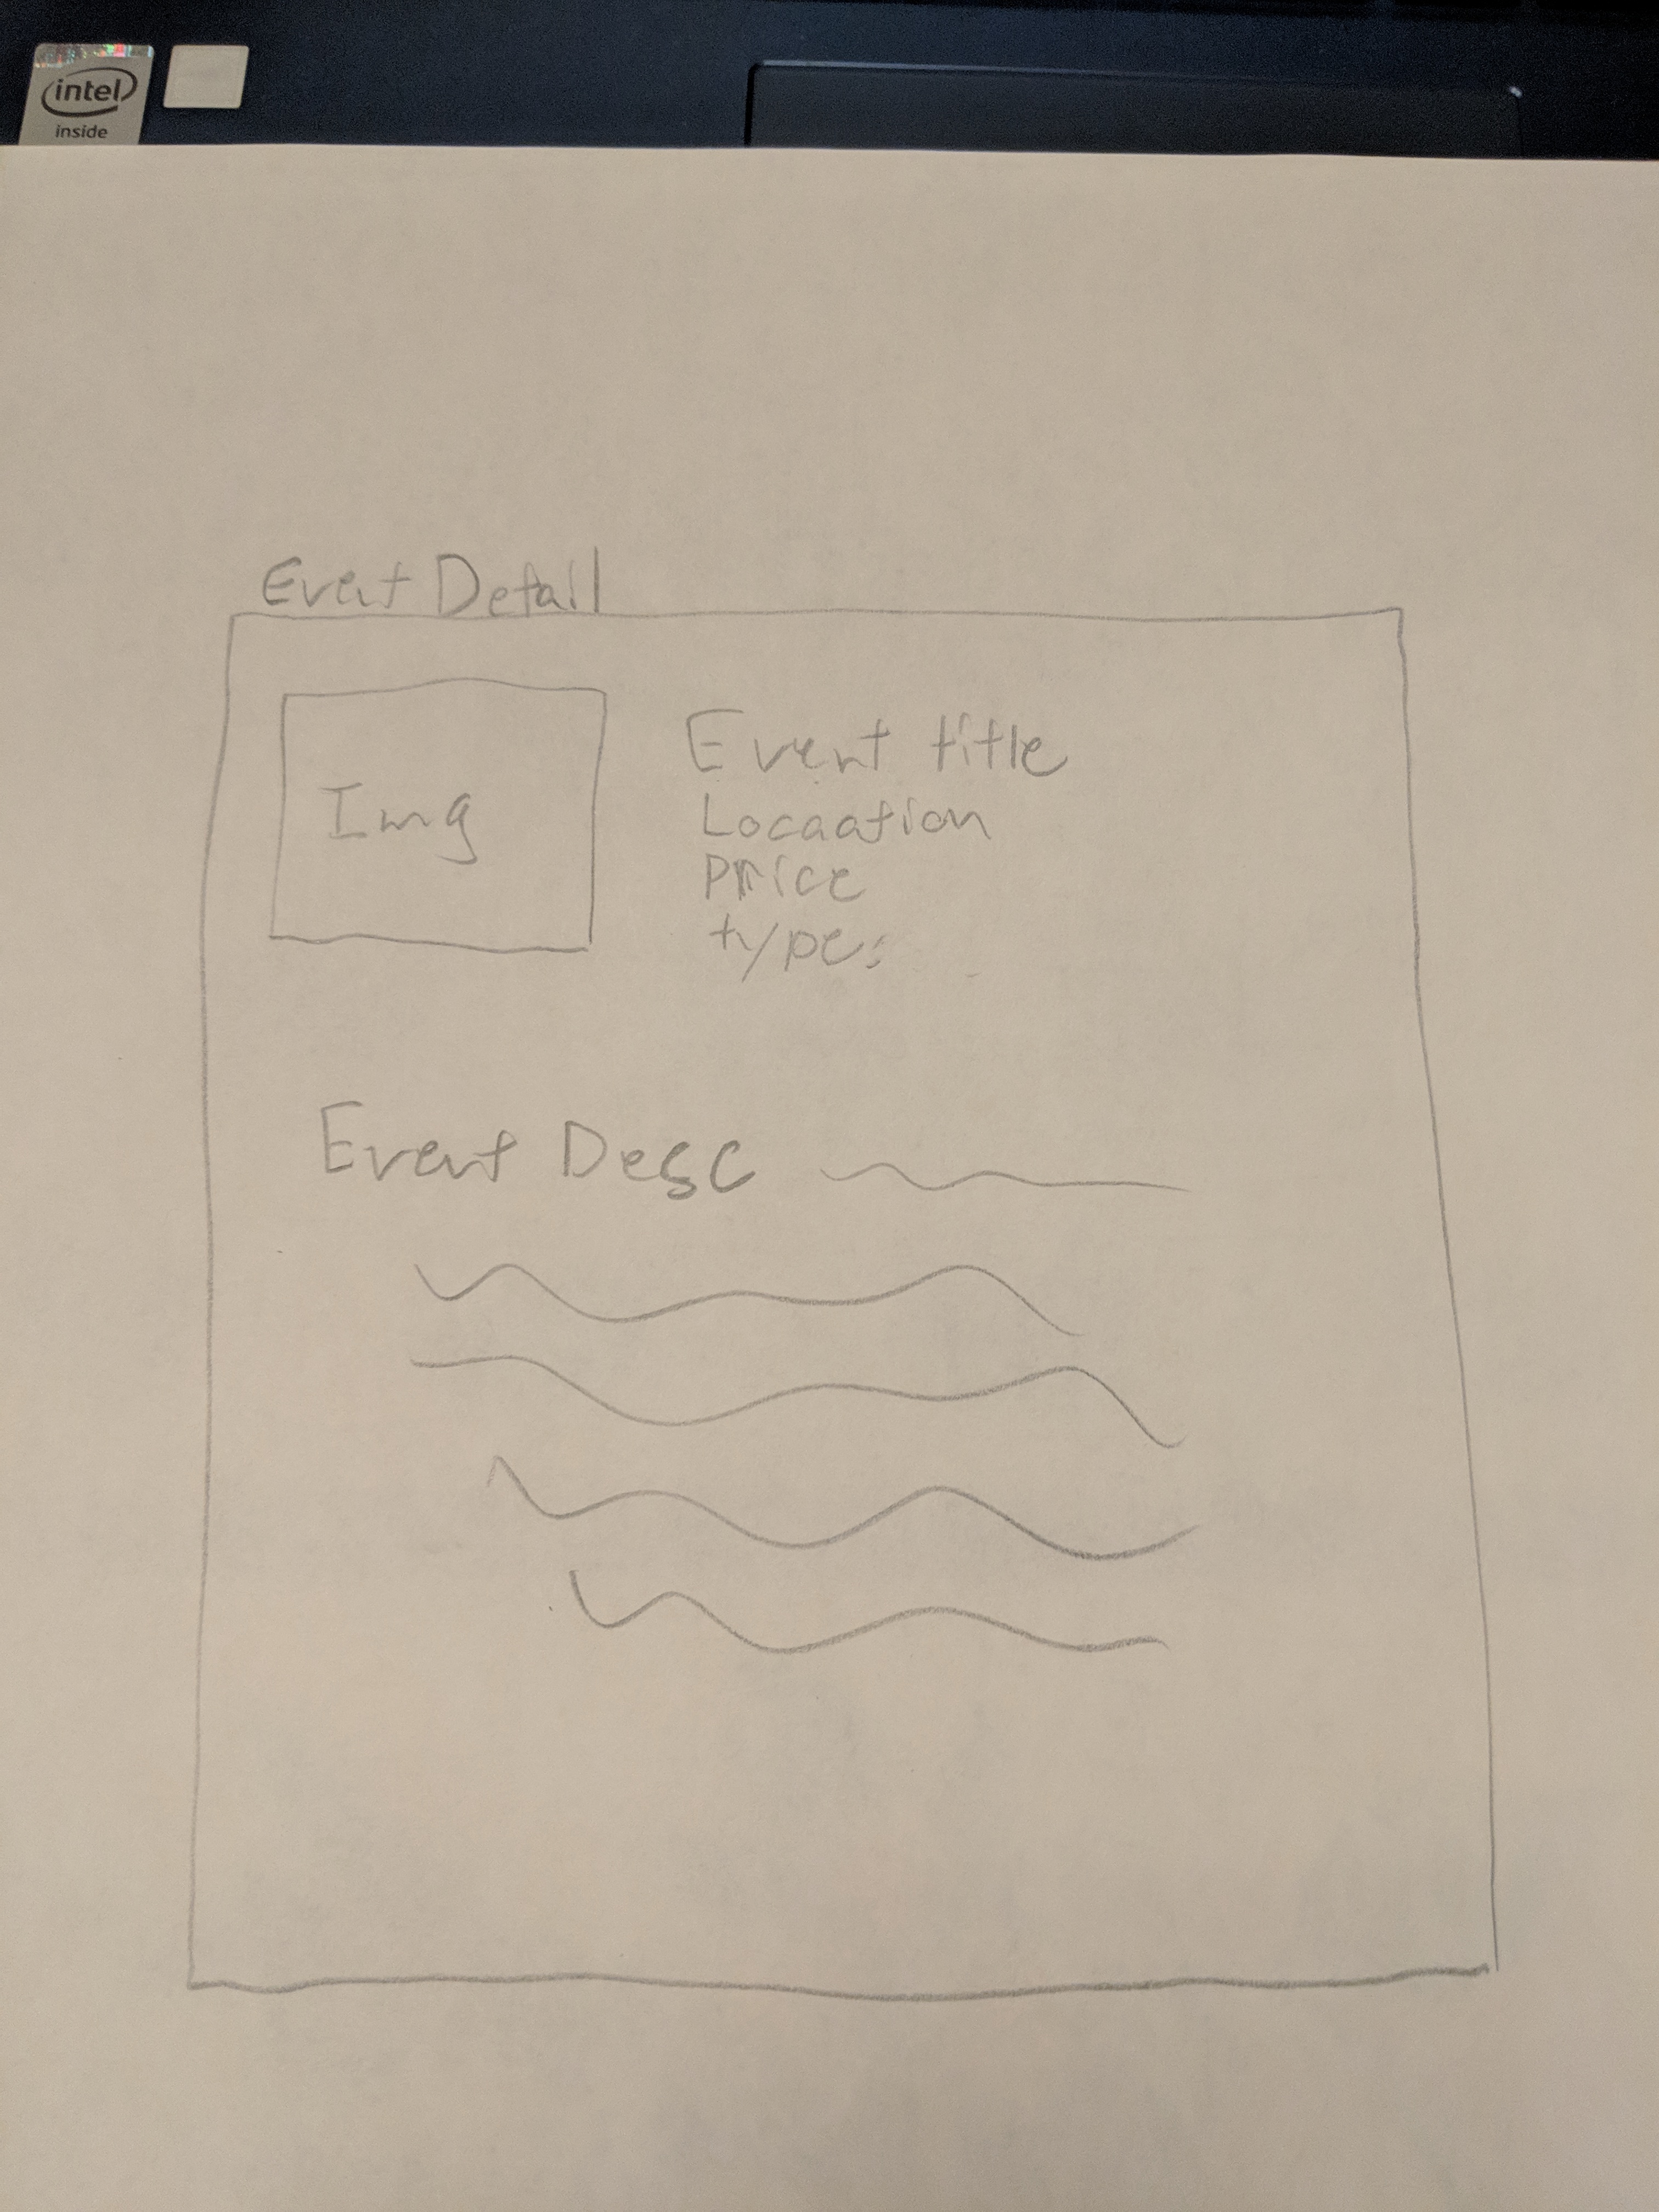 intel
inside
Event Detail
Img
Event title
Locaation
Price
type:
Event Desc